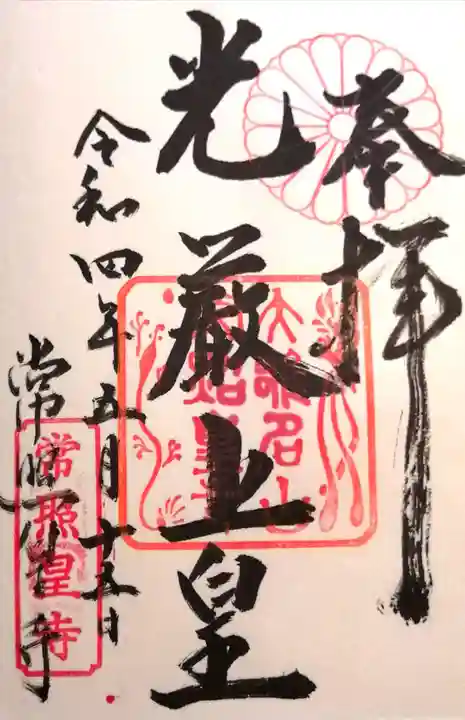 奉拝
光厳上皇
令和四年五月十五日
常照皇寺
大雄名山
常照皇寺